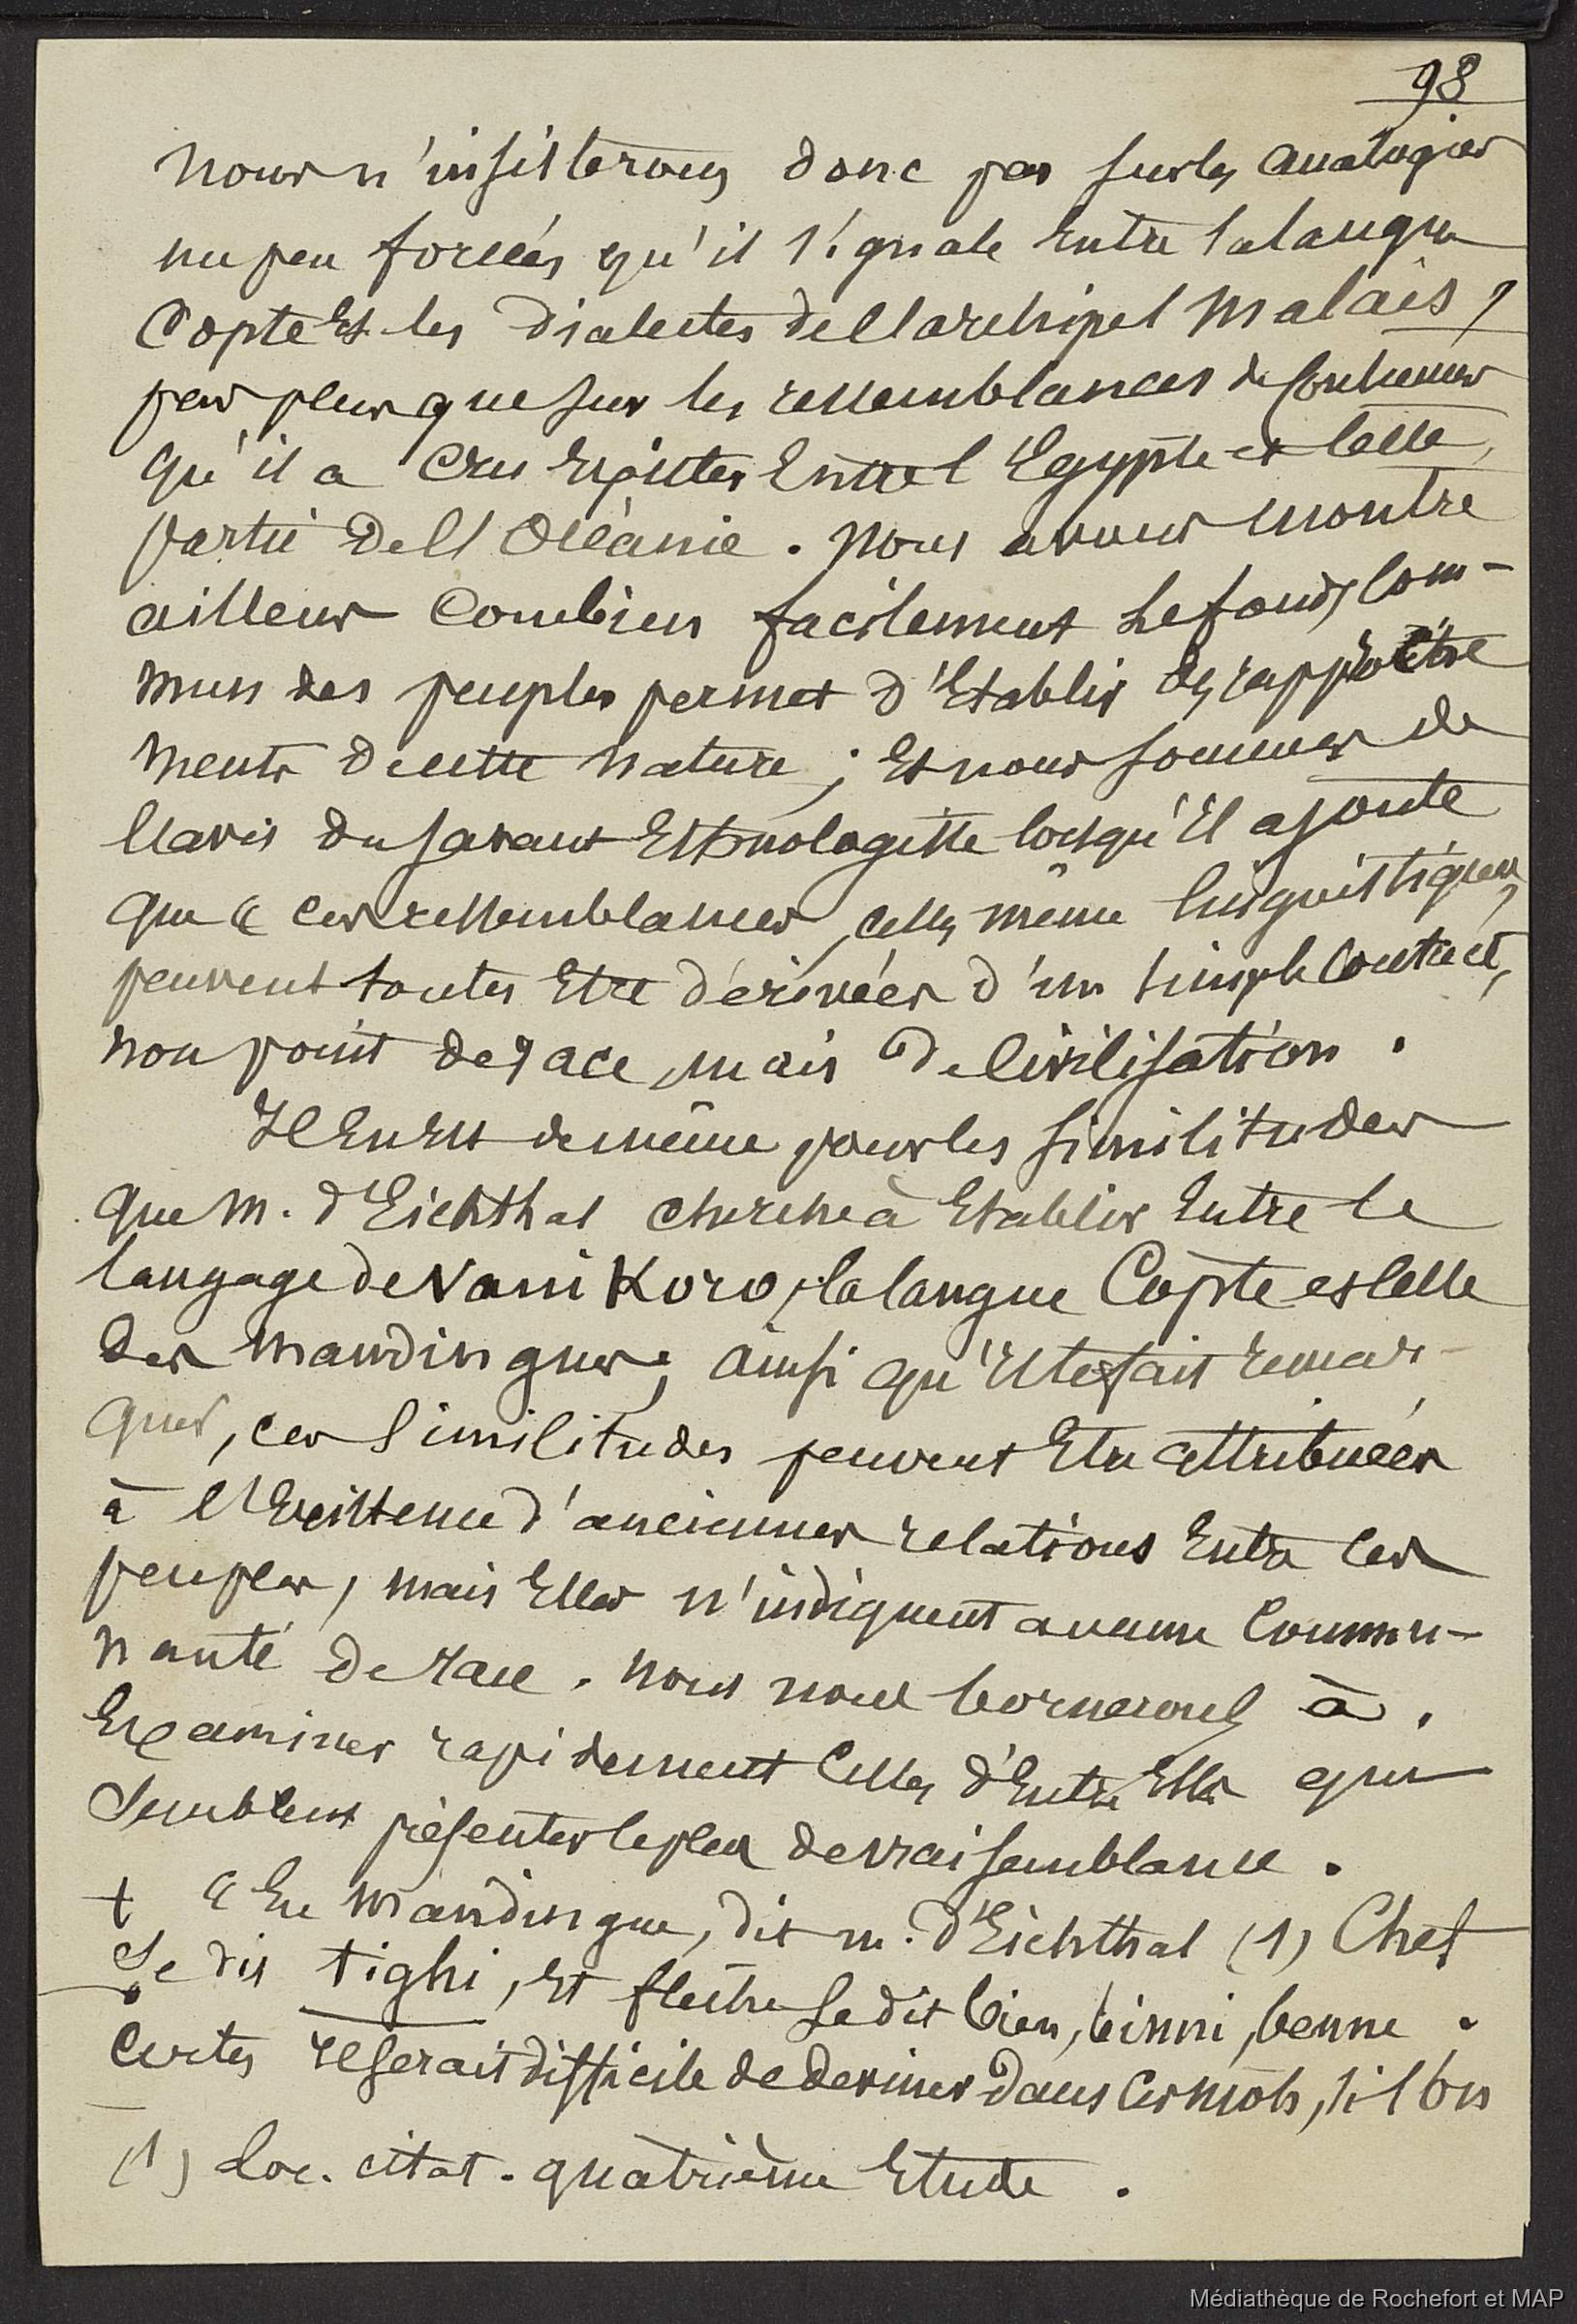 98
nous n'insisterons donc pas sur les analogies
un peu forcées qu'il signale entre la langue
Copte et les dialectes de l'archipel malais,
pas plus que sur les ressemblances de coutumes
qu'il a cru exister entre l'Egypte et cette
partie de l'Océanie. nous avons montré
ailleurs combien facilement le fonds com-
mun des peuples permet d'établir des rapproche
ments de cette nature ; et nous sommes de
l'avis du savant Ethnologiste lorsqu'il ajoute
que « ces ressemblances, celles même linguistiques,
peuvent toutes être dérivées d'un simple contact,
non point de race, mais de civilisation.
Il en est de même pour les similitudes
que m. d'Eichthal cherche à établir entre le
langage de Vanikoro, la langue Copte et celle
des mandingues; ainsi qu'il le fait remar-
quer, ces similitudes peuvent être attribuées
à l'existence d'anciennes relations entre ces
peuples, mais elles n'indiquent aucune commu-
nauté de race. nous nous bornerons à
examiner rapidement celles d'entre elles qui
semblent présenter le plus de vraisemblance.
+ « En mandingue, dit m. d'Eichthal (1) Chef
se dit tighi, et flèche se dit bien, binni, benne.
Certes il serait difficile de deviner dans ces mots, si l'on
(1) Loc. citat. quatrième Etude.
Médiathèque de Rochefort et MAP